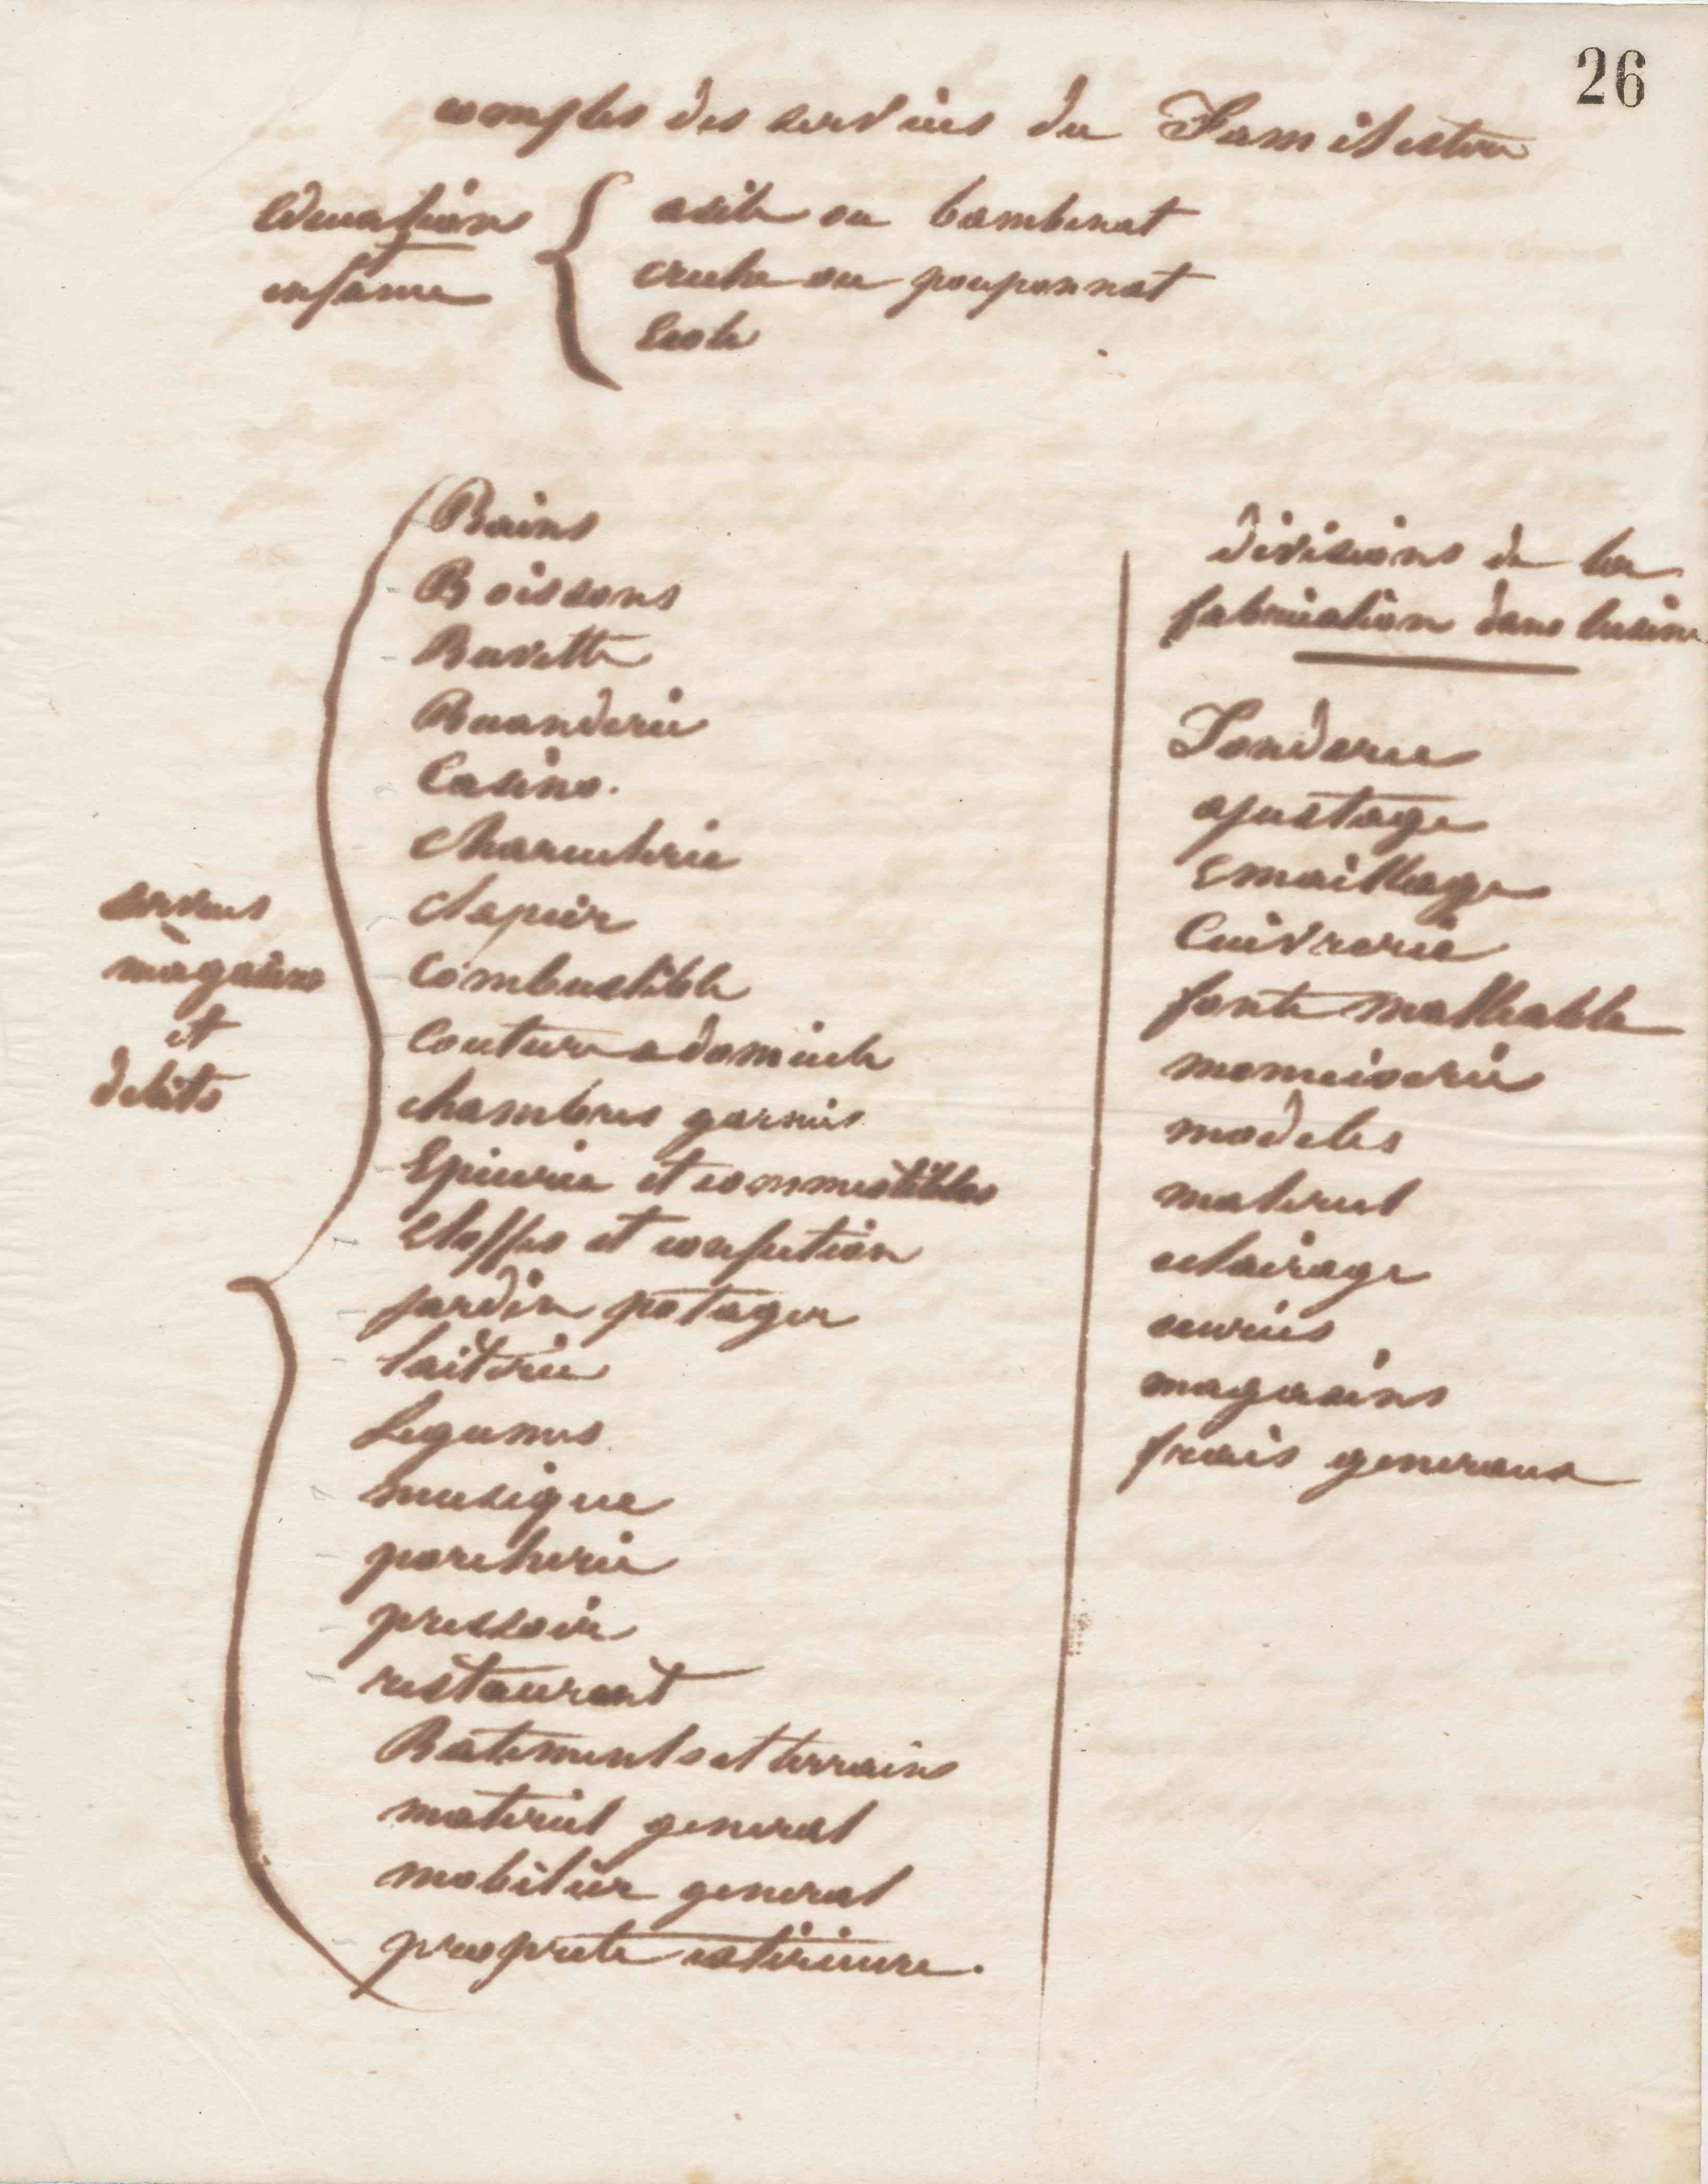 26
comptes des services du Familistere
education
enfance
asile ou bambinat
creche ou pouponnat
Ecole
services
magasins
et
debits
Bains
Boissons
Buvette
Buanderie
Casino.
charcuterie
clapier
Combustible
Couture a domicile
chambres garnies
Epicerie et commestibles
Etoffes et confection
jardin potager
laiterie
Legumes
musique
porcherie
pressoir
restaurant
Batiments et terrains
materiel general
mobilier general
proprete exterieure.
divisions de la
fabrication dans lusine
Fonderie
ajustage
Emaillage
Cuivrerie
fonte malleable
menuiserie
modeles
materiel
eclairage
ecuries
magasins
frais generaux